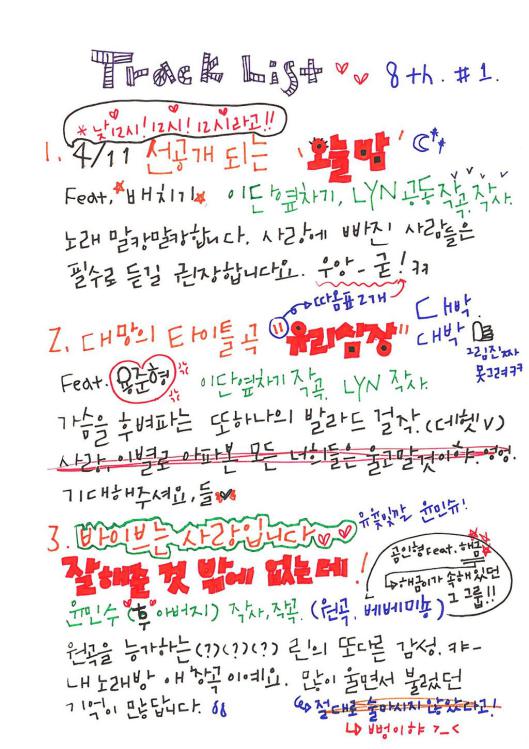 Track List 8th. #1.
*낮 12시! 12시! 12시라고!!
1. 4/11 선공개 되는 "오늘밤"
Feat. 배치기 이단옆차기, LYN 공동작곡, 작사.
노래 말캉말캉합니다. 사랑에 빠진 사람들은
필수로 듣길 권장합니다요. 우앙_굳! ㅋㅋ
따옴표 2개
2. 대망의 타이틀곡 "유리심장" 대박. 대박
그림 진짜
못그려ㅋㅋ
Feat. 용준형 이단옆차기 작곡. LYN 작사.
가슴을 후벼파는 또하나의 발라드 걸작. (데헷V)
사랑, 이별로 아파본 모든 너희들은 울고말것이야. 엉엉.
기대해주셔요, 들
유윷빛깔 윤민슈!
3. 바이브는 사랑입니다
잘해준 것 밖에 없는데!
곰인형 Feat. 해금
↳해금이가 속해있던
그 그룹!!
윤민수 (후 아버지) 작사, 작곡. (원곡. 베베미뇽)
원곡을 능가하는(?)(?)(?) 린의 또다른 감성. 캬-
내 노래방 애창곡이예요. 많이 울면서 불렀던
기억이 많답니다. ↳절대로 술마시지 않았다고!
↳뻥이야 >_<